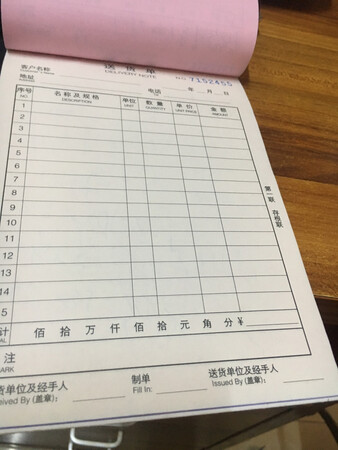 送货单
客户名称
DELIVERY NOTE
NO 7152455
地址 电话 年 月 日
序号 名称及规格 单位 数量 单价 金额
NO. DESCRIPTION UNIT QUANTITY UNIT PRICE AMOUNT
1
2
3
4
5
6
7
8
9
10
11
12
13
14
5
第一联 存根联
计 佰 拾 万 仟 佰 拾 元 角 分 ¥
AL
注
ARK
货单位及经手人 制单 送货单位及经手人
eived By (盖章): Fill In: Issued By (盖章):